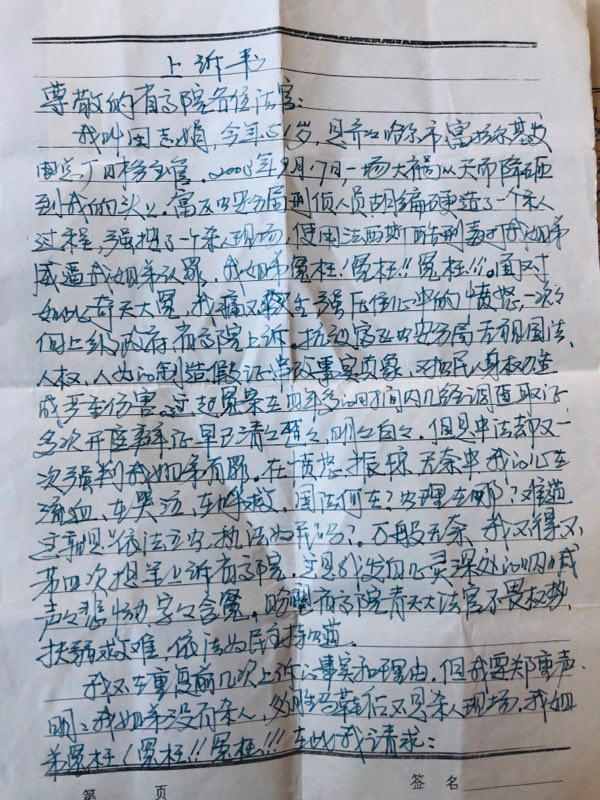 上诉书
尊敬的省高院各位法官：
我叫国志娟，今年51岁，是齐齐哈尔市富拉尔基
厂日检主管，2003年9月17日，一场大祸从天而降砸
到我的头上。富区公安分局刑侦人员胡编硬造了一个杀人
过程，强按了一个杀人现场，使用法西斯酷刑毒打我姐弟
威逼我姐弟认罪，我姐弟冤枉！冤枉!!冤枉!!!。面对
如此奇天大冤，我痛不欲生，强压住心中的愤怒，一次次
向上级政府、省高院上诉，抗议富区公安分局无视国法、
人权，人为的制造假证串改事实真象，对我民人身权力造
成严重伤害。这起冤案在四年多的时间内几经调查取证
多次开庭辩证，早已清清楚楚，明明白白，但是中法却又一
次强判我姐弟有罪。在愤怒、振惊、无奈中我的心在
流血、在哭泣、在呼救，国法何在？公理在哪？难道
这就是“依法立公，执法为民吗？”万般无奈，我不得不
第四次提笔上诉省高院，这是我发自心灵深处的呐喊
声声悲恸，字字含冤，盼望省高院青天大法官不畏权势，
扶弱救难、依法为民主持公道。
我不在重复前几次上诉的事实和理由，但我要郑重声
明：我姐弟没有杀人，和不是杀人现场，我姐
弟冤枉！冤枉!!冤枉!!! 在此我请求：
第 页
签名